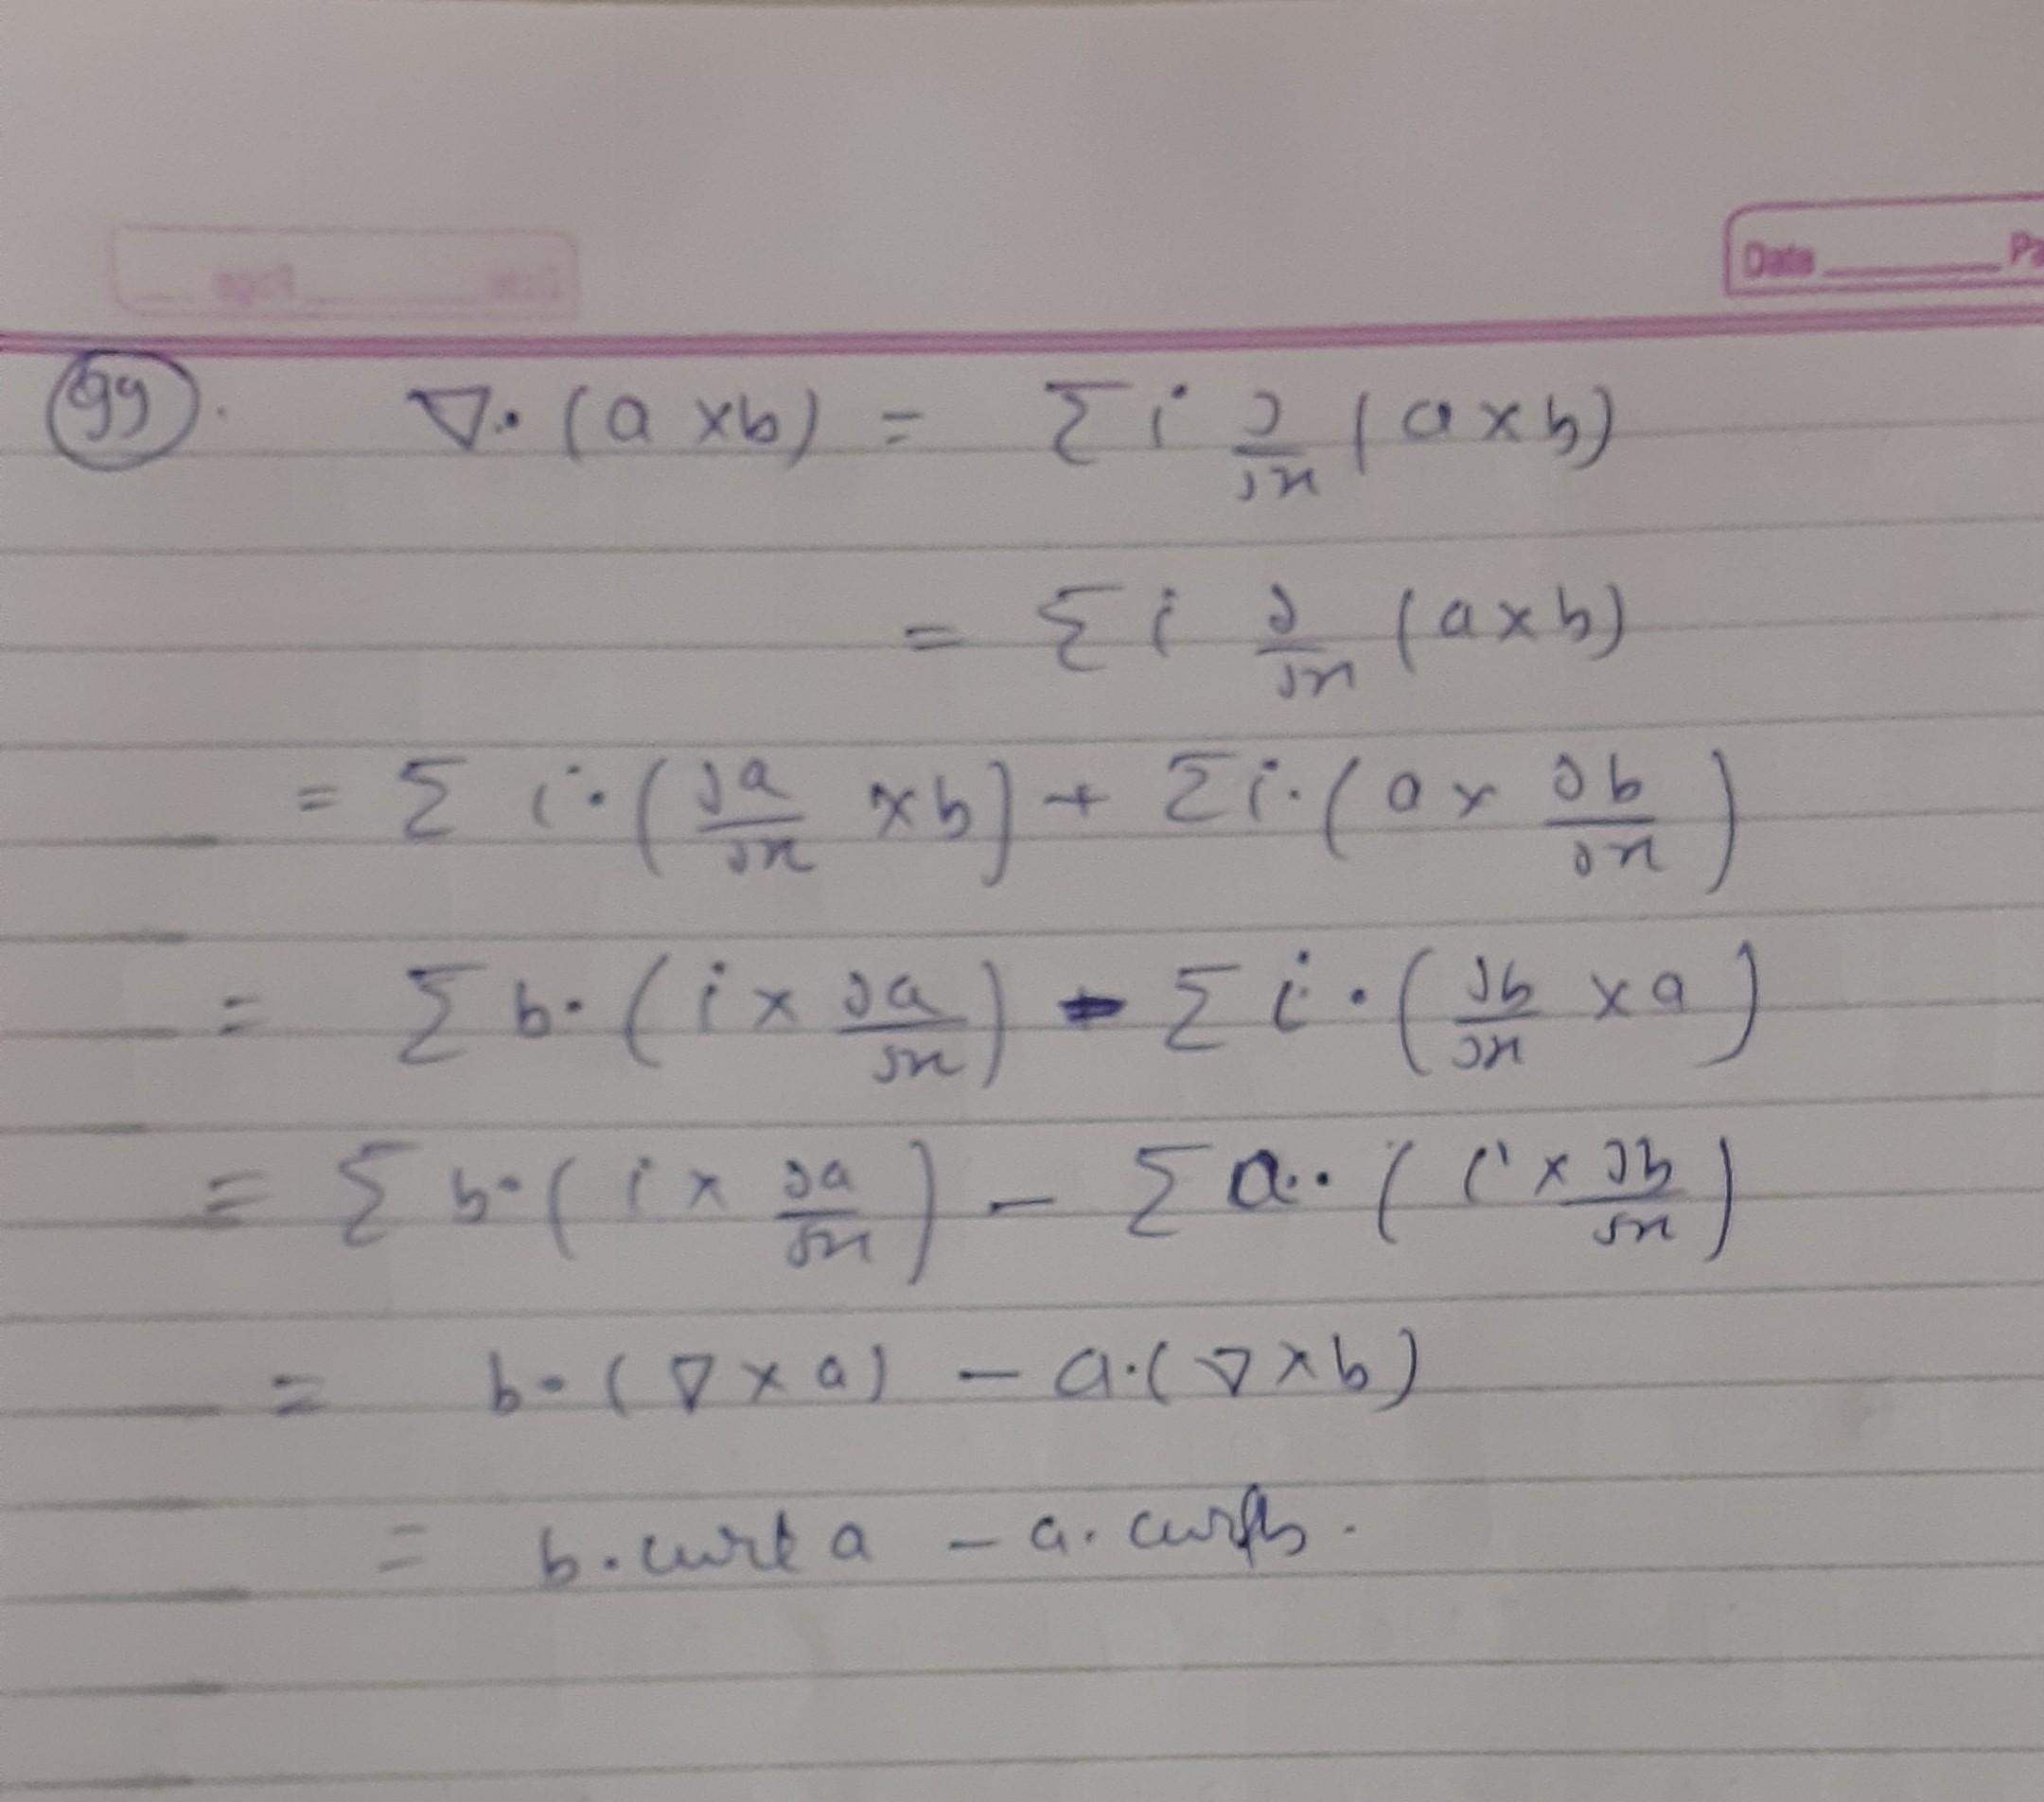 Date ______ Pa
99. ∇·(a×b) = Σ i ∂/∂x (a×b)
= Σ i ∂/∂x (a×b)
= Σ i·(∂a/∂x ×b) + Σ i·(a× ∂b/∂x)
= Σ b·(i× ∂a/∂x) - Σ i·(∂b/∂x ×a)
= Σ b·(i× ∂a/∂x) - Σ a·(i× ∂b/∂x)
= b·(∇×a) - a·(∇×b)
= b.curl a - a.curl b.